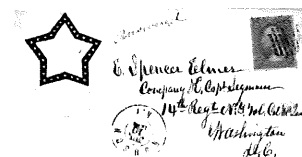 E. Spencer Elmer
Company H, Capt Seymour
14th Regt N.Y. Vol. Col
Washington
D.C.